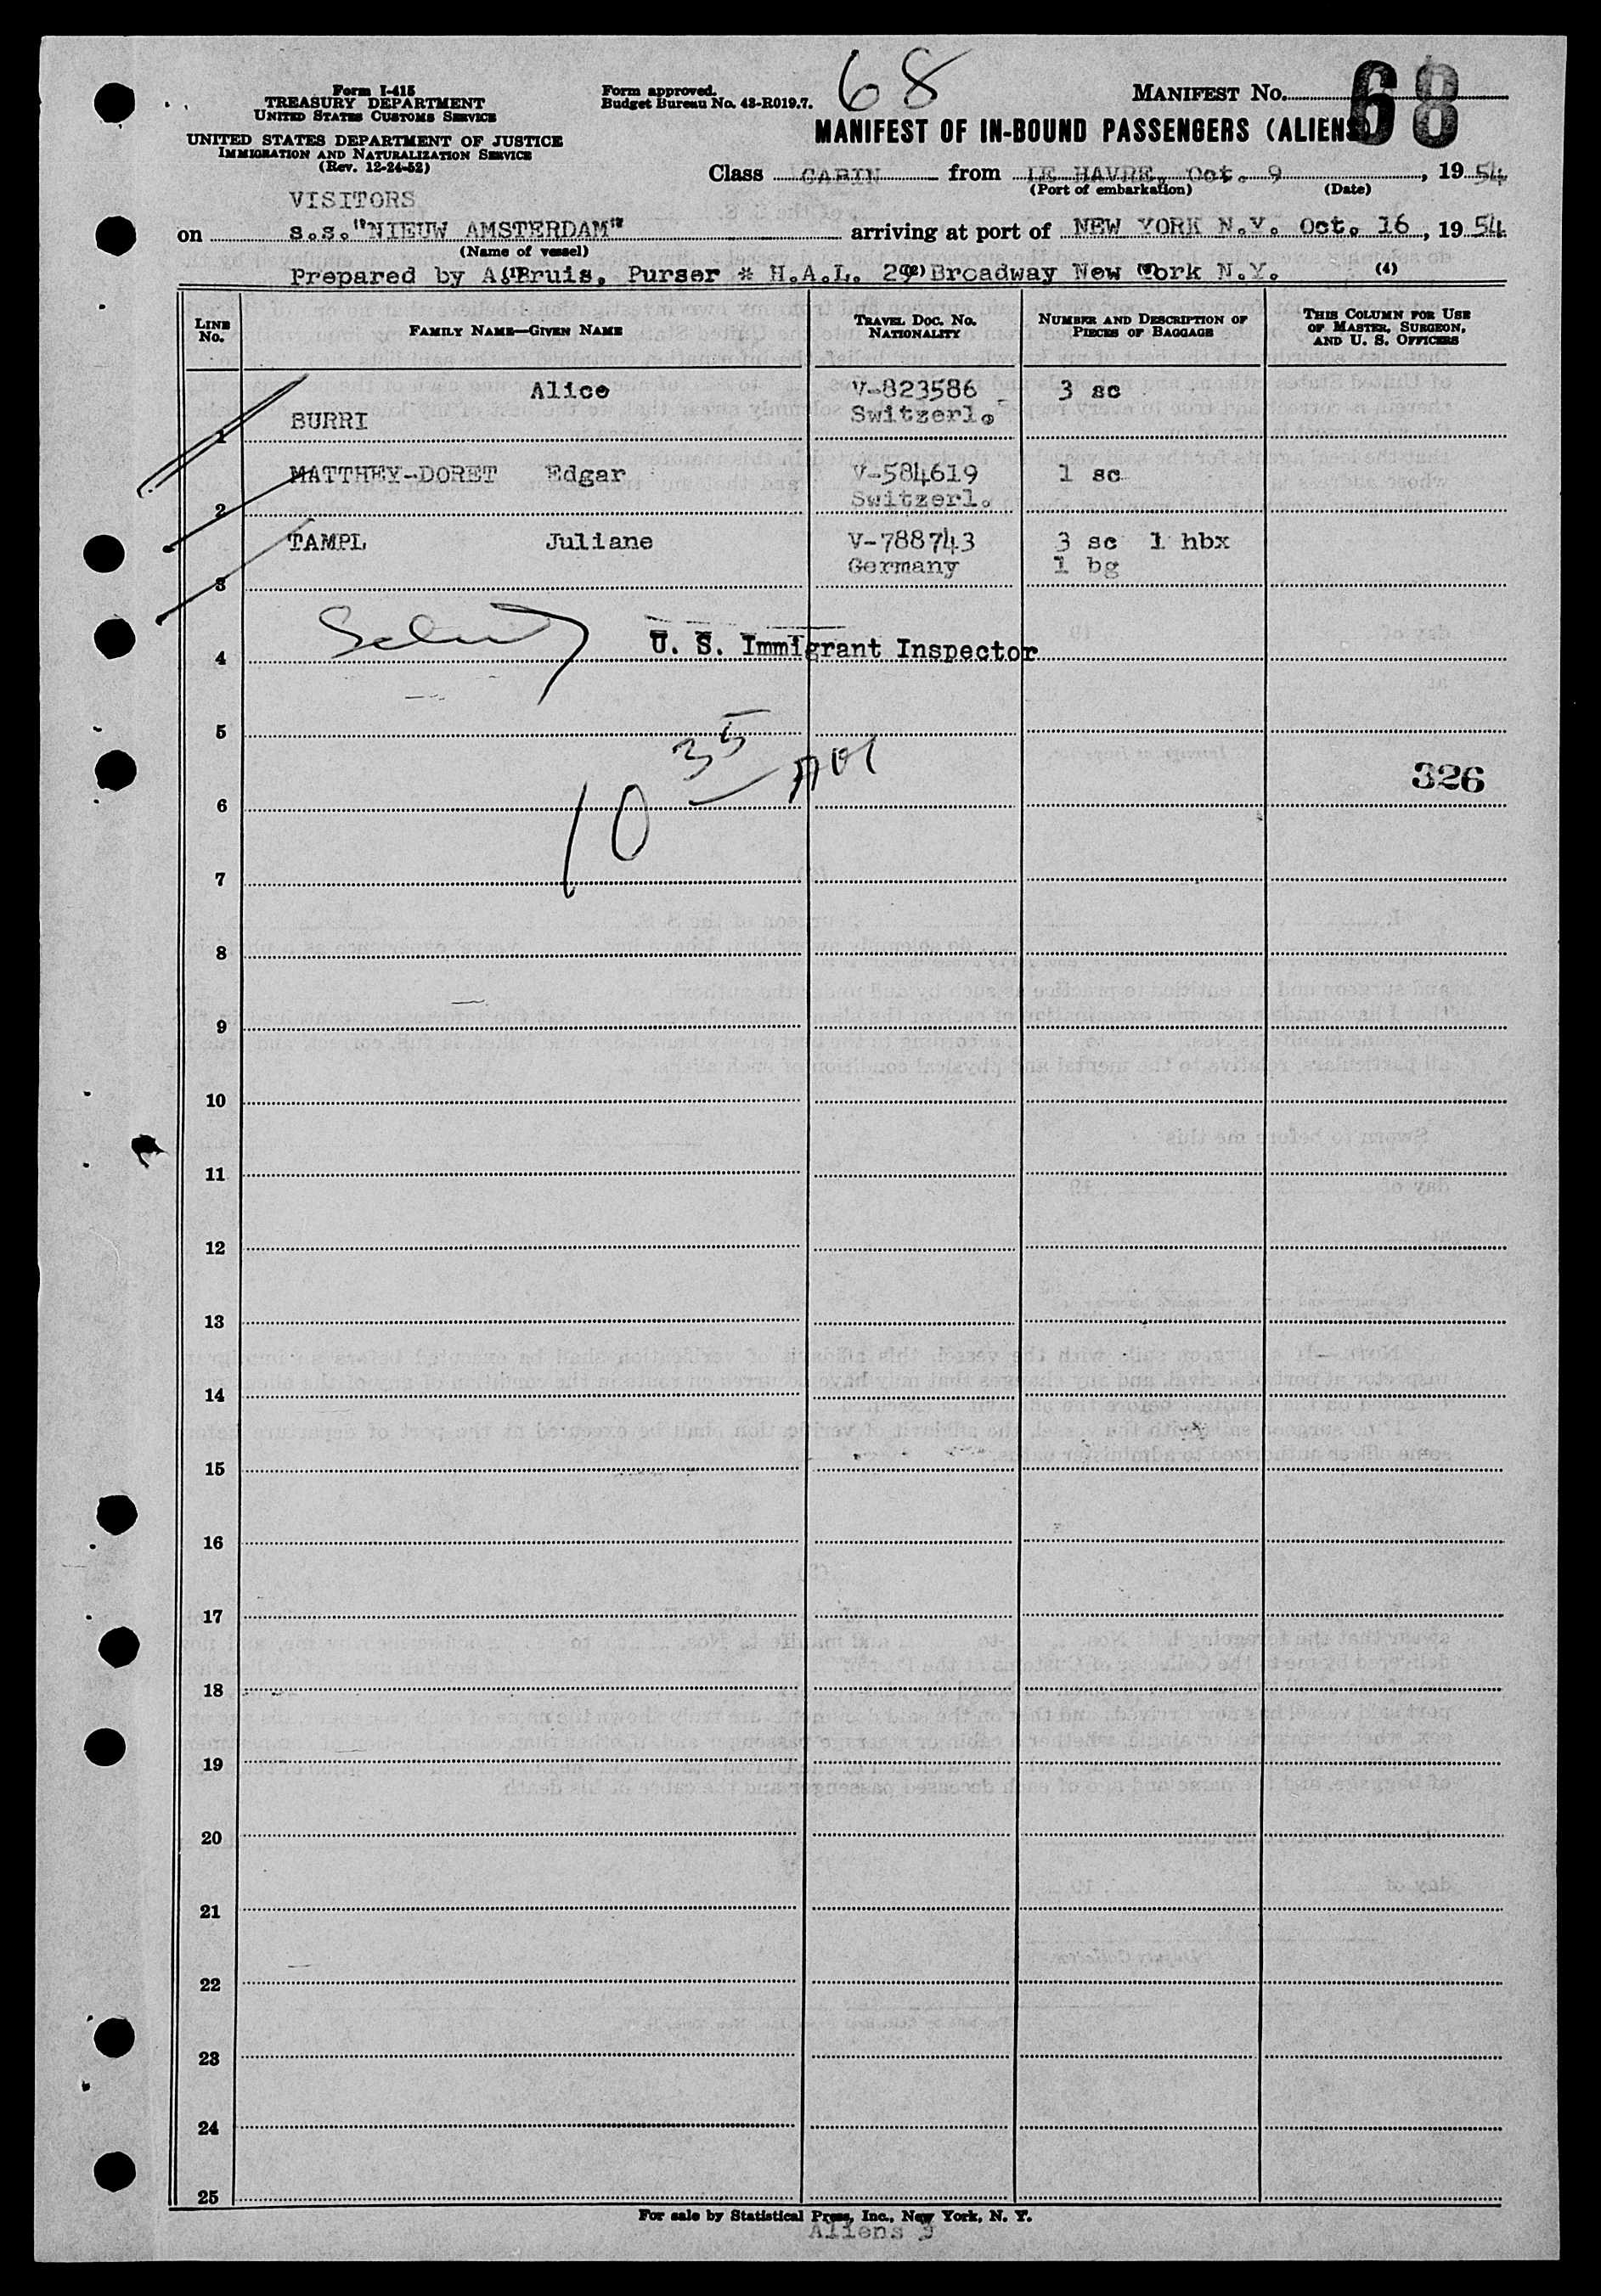 Form I-415
TREASURY DEPARTMENT
UNITED STATES CUSTOMS SERVICE
UNITED STATES DEPARTMENT OF JUSTICE
IMMIGRATION AND NATURALIZATION SERVICE
(Rev. 12-24-52)
Form approved.
Budget Bureau No. 43-R019.7.
68
MANIFEST No. 68
MANIFEST OF IN-BOUND PASSENGERS (ALIENS)
Class CABIN from LE HAVRE, Oct. 9, 1954
(Port of embarkation) (Date)
VISITORS
on s.s. "NIEUW AMSTERDAM" arriving at port of NEW YORK N.Y. Oct. 16, 1954
(Name of vessel)
Prepared by A. Bruis, Purser * H.A.L. 29 Broadway New York N.Y.
(1) (2) (3) (4)
LINE No. FAMILY NAME—GIVEN NAME TRAVEL DOC. No. NATIONALITY NUMBER AND DESCRIPTION OF PIECES OF BAGGAGE THIS COLUMN FOR USE OF MASTER, SURGEON, AND U. S. OFFICERS
Alice V-823586 3 sc
1 BURRI Switzerl.
MATTHEY-DORET Edgar V-584619 1 sc
2 Switzerl.
TAMPL Juliane V-788743 3 sc 1 hbx
3 Germany 1 bg
4 U. S. Immigrant Inspector
5
10 35 AM
326
6
7
8
9
10
11
12
13
14
15
16
17
18
19
20
21
22
23
24
25
For sale by Statistical Press, Inc., New York, N. Y.
Aliens 3